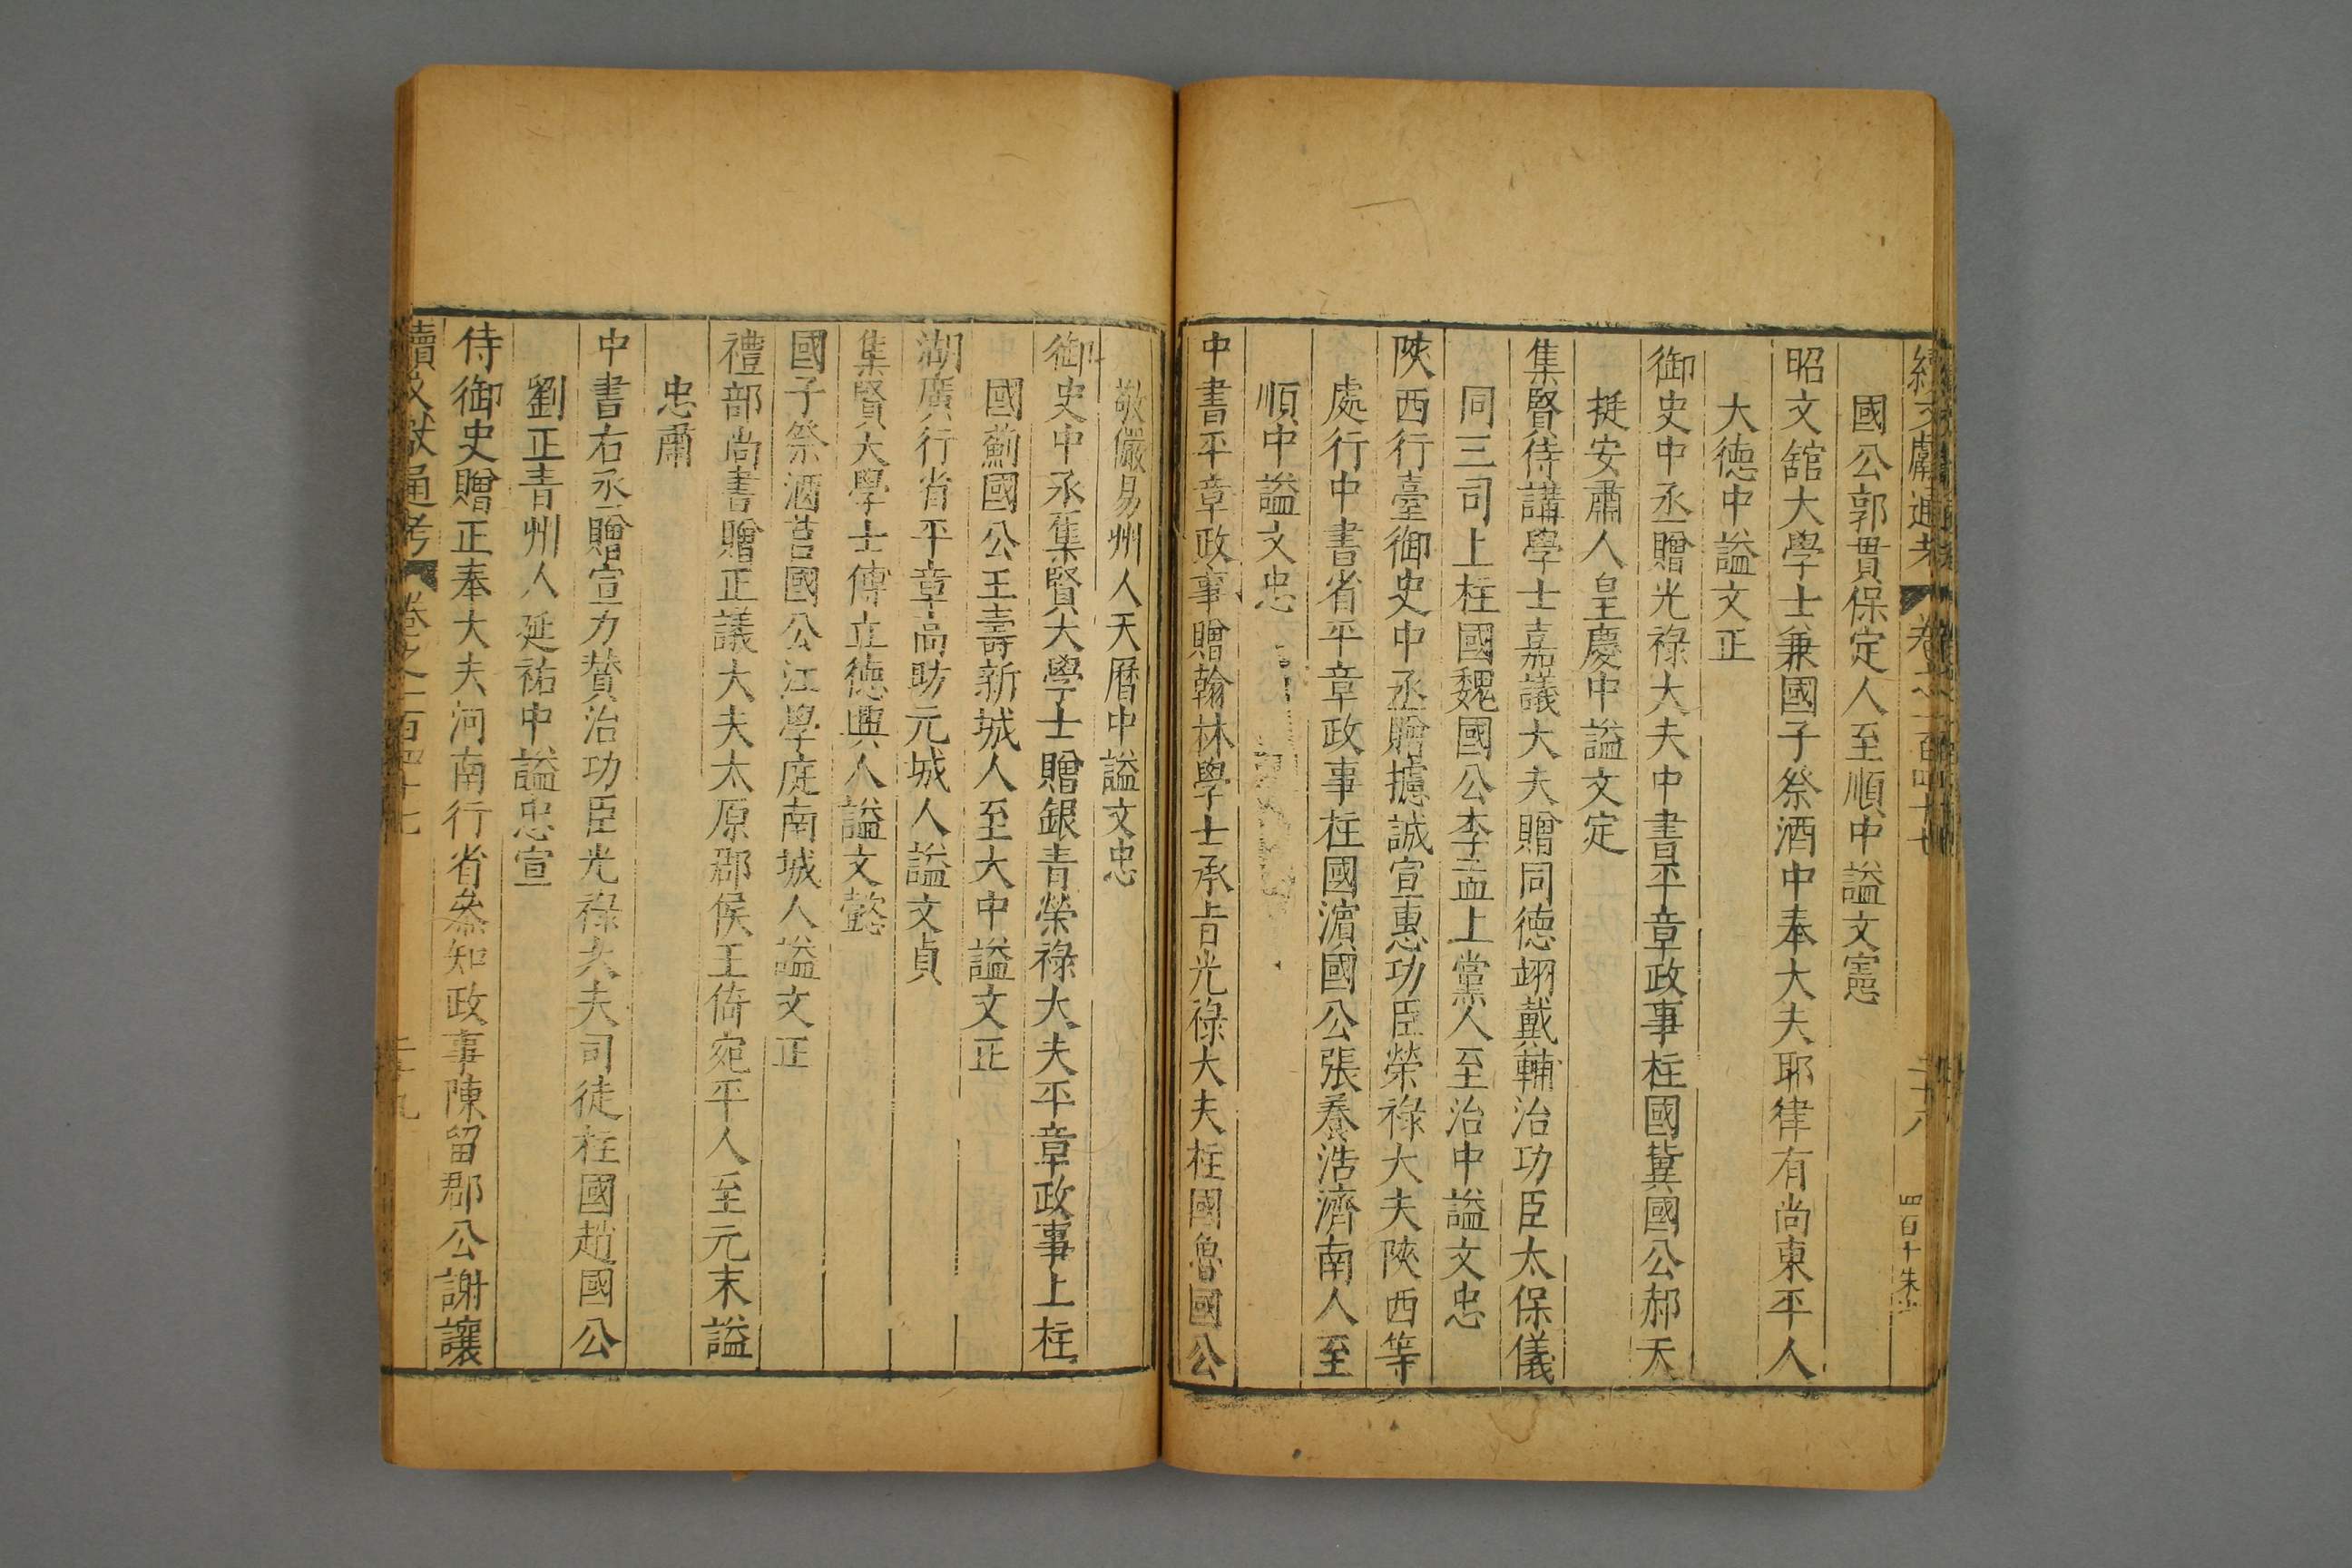 續文獻通考 卷之一百四十七 二十八 四百十 朱
國公郭貫保定人至順中謚文憲
昭文舘大學士兼國子祭酒中奉大夫耶律有尚東平人
大德中謚文正
御史中丞贈光祿大夫中書平章政事柱國冀國公郝天
挺安肅人皇慶中謚文定
集賢侍講學士嘉議大夫贈同德翊戴輔治功臣太保儀
同三司上柱國魏國公李孟上黨人至治中謚文忠
陝西行臺御史中丞贈攄誠宣惠功臣榮祿大夫陝西等
處行中書省平章政事柱國濵國公張養浩濟南人至
順中謚文忠
中書平章政事贈翰林學士承旨光祿大夫柱國魯國公
敬儼易州人天曆中謚文忠
御史中丞集賢大學士贈銀青榮祿大夫平章政事上柱
國薊國公王壽新城人至大中謚文正
湖廣行省平章高昉元城人謚文貞
集賢大學士傅立德興人謚文懿
國子祭酒莒國公江學庭南城人謚文正
禮部尚書贈正議大夫太原郡侯王倚宛平人至元末謚
忠肅
中書右丞贈宣力賛治功臣光祿大夫司徒柱國趙國公
劉正青州人延祐中謚忠宣
侍御史贈正奉大夫河南行省叅知政事陳留郡公謝讓
續文獻通考 卷之一百四十七 二十九